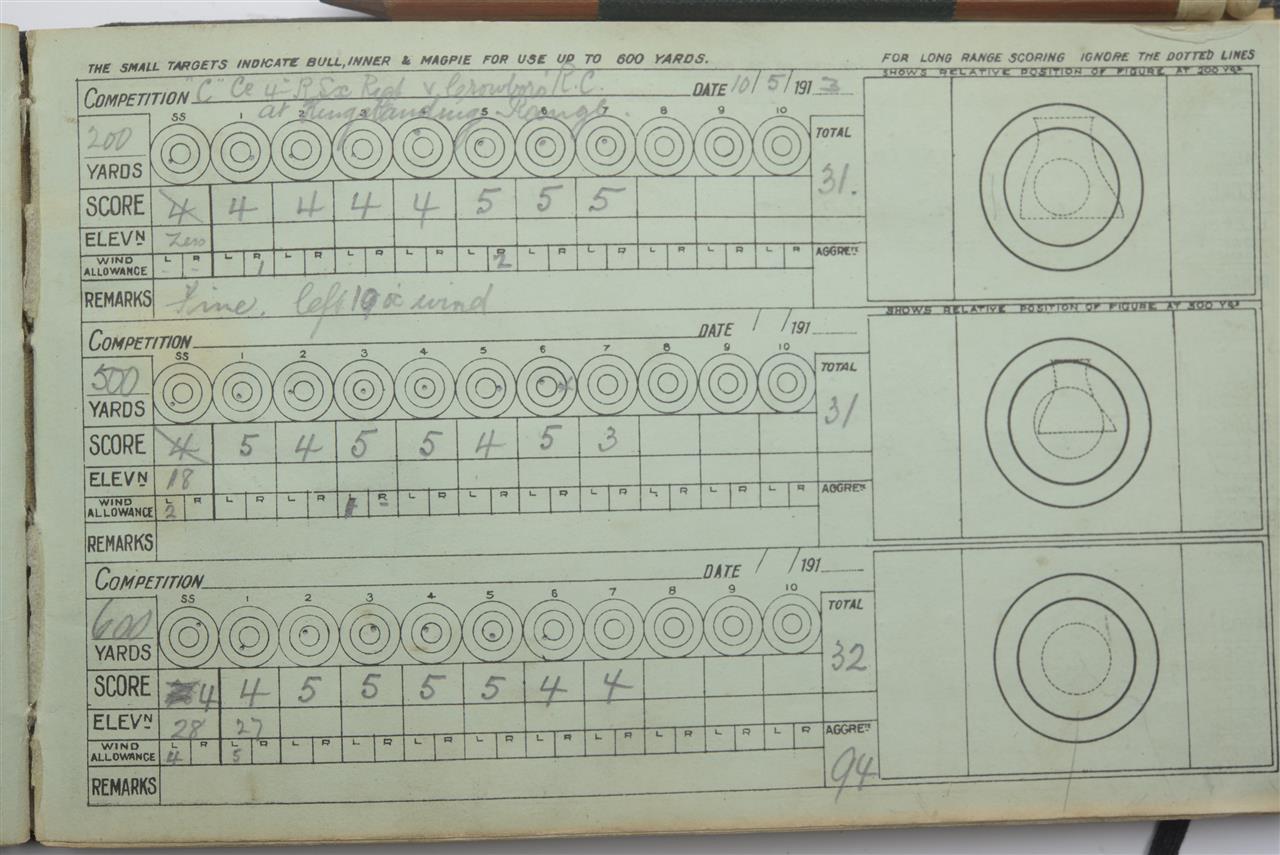 THE SMALL TARGETS INDICATE BULL, INNER & MAGPIE FOR USE UP TO 600 YARDS.
FOR LONG RANGE SCORING IGNORE THE DOTTED LINES
COMPETITION "C" Co 4th R. Sx Regt v Crowboro' R.C. DATE 10/5/1913
at Kingstanding Range.
SHOWS RELATIVE POSITION OF FIGURE AT 200 YDS
SS 1 2 3 4 5 6 7 8 9 10
200 YARDS
TOTAL 31.
SCORE 4 4 4 4 4 5 5 5
ELEVN Zero
WIND ALLOWANCE L R L R L R L R L R L R L R L R L R L R L R
1 2
AGGRETE
REMARKS Fine. left 19 wind
COMPETITION DATE / /191
SHOWS RELATIVE POSITION OF FIGURE AT 500 YDS
SS 1 2 3 4 5 6 7 8 9 10
500 YARDS
TOTAL 31
SCORE 4 5 4 5 5 4 5 3
ELEVN 18
WIND ALLOWANCE L R L R L R L R L R L R L R L R L R L R L R
2 1
AGGRETE
REMARKS
COMPETITION DATE / /191
SS 1 2 3 4 5 6 7 8 9 10
600 YARDS
TOTAL 32
SCORE 4 4 5 5 5 5 4 4
ELEVN 28 27
WIND ALLOWANCE L R L R L R L R L R L R L R L R L R L R L R
4 5
AGGRETE 94
REMARKS